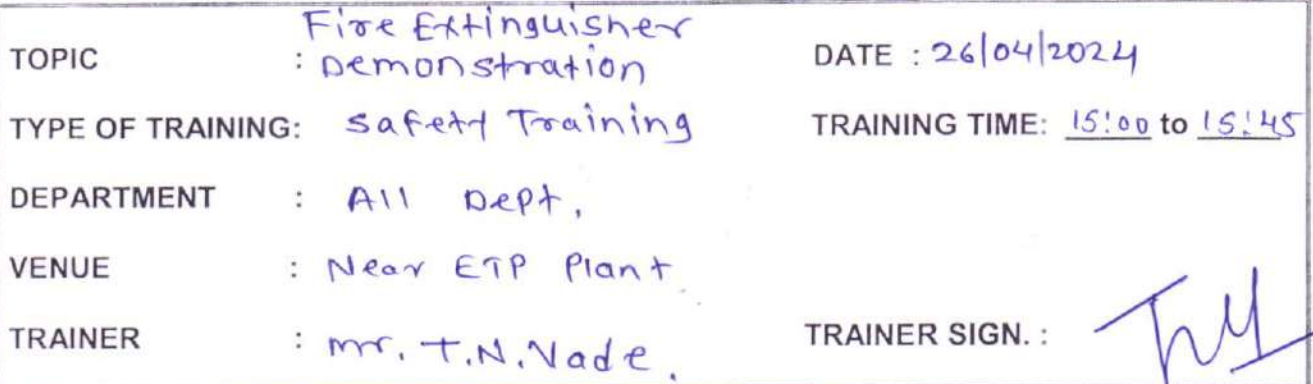 Fire Extinguisher
TOPIC : Demonstration DATE : 26/04/2024
TYPE OF TRAINING: Safety Training TRAINING TIME: 15:00 to 15:45
DEPARTMENT : All Dept.
VENUE : Near ETP Plant
TRAINER : mr. T.N.Vade. TRAINER SIGN. :